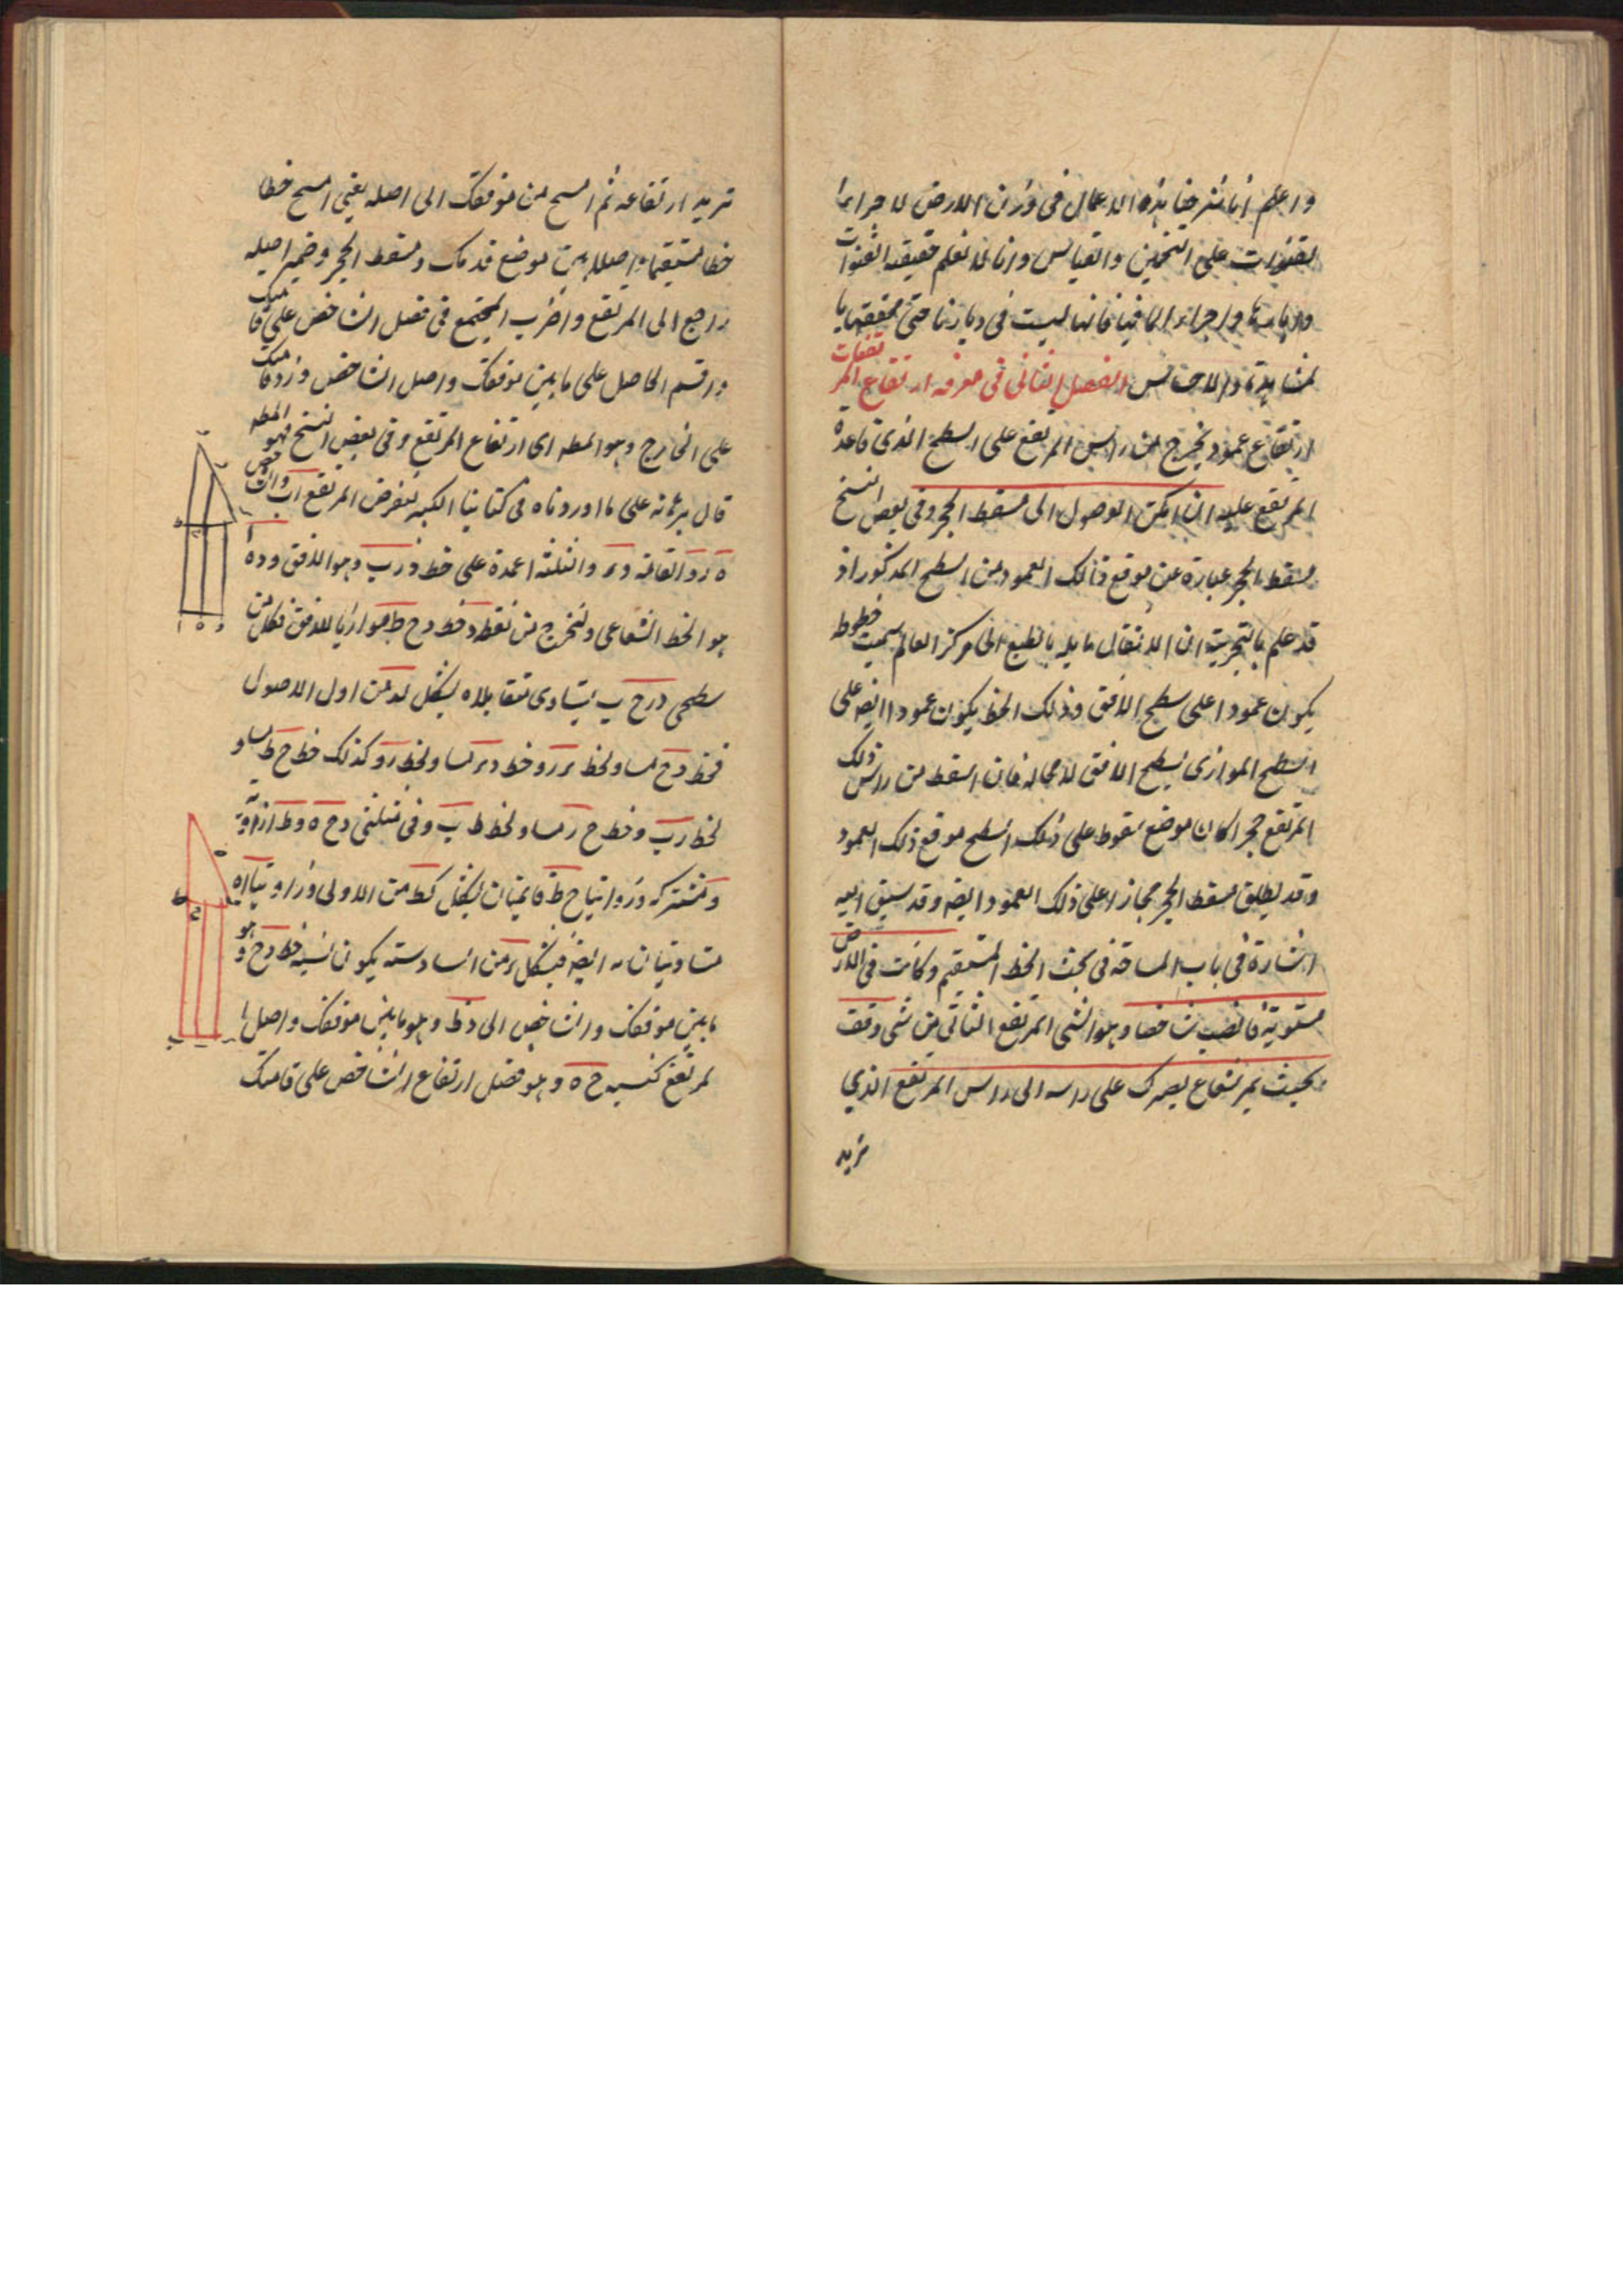 واعلم انا شرحنا هذه الاعمال فى وزن الارض لاجراء
القنوات على التخمين والقياس وانا لا نعلم حقيقة القنوات
وابارها واجراء الماء فيها فانها ليست فى ديارنا حتى نحققها با
لمشاهدة والاحساس الفصل الثانى فى معرفه ارتفاع المر
تفعات
ارتفاع عمود يخرج من راس المرتفع على السطح الذى قاعدة
المرتفع عليه ان امكن الوصول الى مسقط الحجر وفى بعض النسخ
مسقط الحجر عبارة عن موقع ذالك العمود من السطح المذكور اذ
قد علم بالتجربة ان الاثقال مايله بالطبع الى مركز العالم سميت خطوط
يكون عمودا على سطح الافق وذلك الخط يكون عمودا ايضه على
السطح الموازى لسطح الافق لا محاله فان اسقط من راس ذلك
المرتفع حجر لكان موضع سقوطه على ذلك السطح موقع ذلك العمود
وقد يطلق مسقط الحجر مجازا على ذلك العمود ايضه وقد سبق اليه
اشارة فى باب المساحة فى بحث الخط المستقيم وكانت فى الارض
مستوية فانصب شاخصا وهو الشى المرتفع الثانى من شى وقف
بحيث يمر شعاع بصرك على راسه الى راس المرتفع الذي
تريد
تريد ارتفاعه ثم امسح من موقفك الى اصله يعنى امسح خطا
خطا مستقيما واصلا بين موضع قدمك ومسقط الحجر وضمير اصله
راجع الى المرتفع واضرب المجتمع فى فضل الشاخص على قامتك
واقسم الحاصل على ما بين موقفك واصل الشاخص وزد قامتك
على الخارج وهو المطه اى ارتفاع المرتفع وفى بعض النسخ فهو المطه
قال برهانه على ما اوردناه فى كتابنا الكبير نفرض المرتفع اب والشاخص
ه ز والقامة د و والثلثة اعمدة على خط و ز ب وهو الافق و د ه ا
هو الخط الشعاعى ولنخرج من نقطه د خط د ح ط موازيا للافق فكل من
سطحى د ز ح ب يتساوى متقابلاه بشكل لد من اول الاصول
فخط د ح مساو لخط و ز و خط د و مساو لخط ز ح وكذلك خط ح ط مساو
لخط ز ب وخط ح ز مساو لخط ط ب وفى مثلثى د ح ه د ط ا زاوية
د مشتركه وزاويتا ح ط قايمتان بشكل كط من الاولى وزاويتا ه ا
متساويتان ايضه فبشكل د من السادسة يكون نسبة خط د ح و هو
ما بين موقفك والشاخص الى د ط وهو ما بين موقفك واصل ا
لمرتفع كنسبه ح ه وهو فضل ارتفاع الشاخص على قامتك